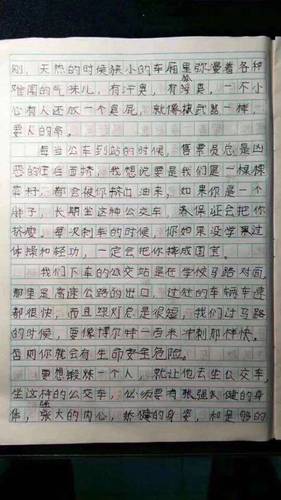 刚，天热的时候狭小的车厢里弥漫着各种
难闻的气味儿，有汗臭，有狐臭，一不小
心有人还放一个臭屁，就像核武器一样，
要人的命。
每当公车到站的时候，售票员总是凶
恶的往车里挤，我想说要是我们是一棵棵
菜籽，都会被你挤出油来，如果你是一个
胖子，长期坐这种公交车，我保证会把你
挤瘦。每次刹车的时候，你如果没学过
体操和轻功，一定会把你摔成国宝。
我们下车的公交站是在学校马路对面，
那里是高速公路的出口，过往的车辆车速
都很快，而且绿灯总是很短，我们过马路
的时候，要像博尔特一百米冲刺那样快。
否则你就会有生命安全危险。
要想锻炼一个人，就让他去坐公交车，
坐这样的公交车，必须要有强大健的身
体，强大的内心，矫健的身姿，和足够的